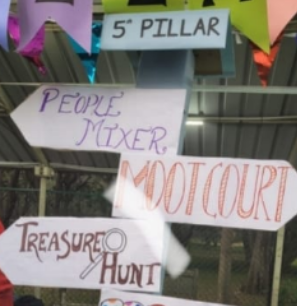 5° PILLAR
PEOPLE
MIXER
MOOTCOURT
TREASURE
HUNT